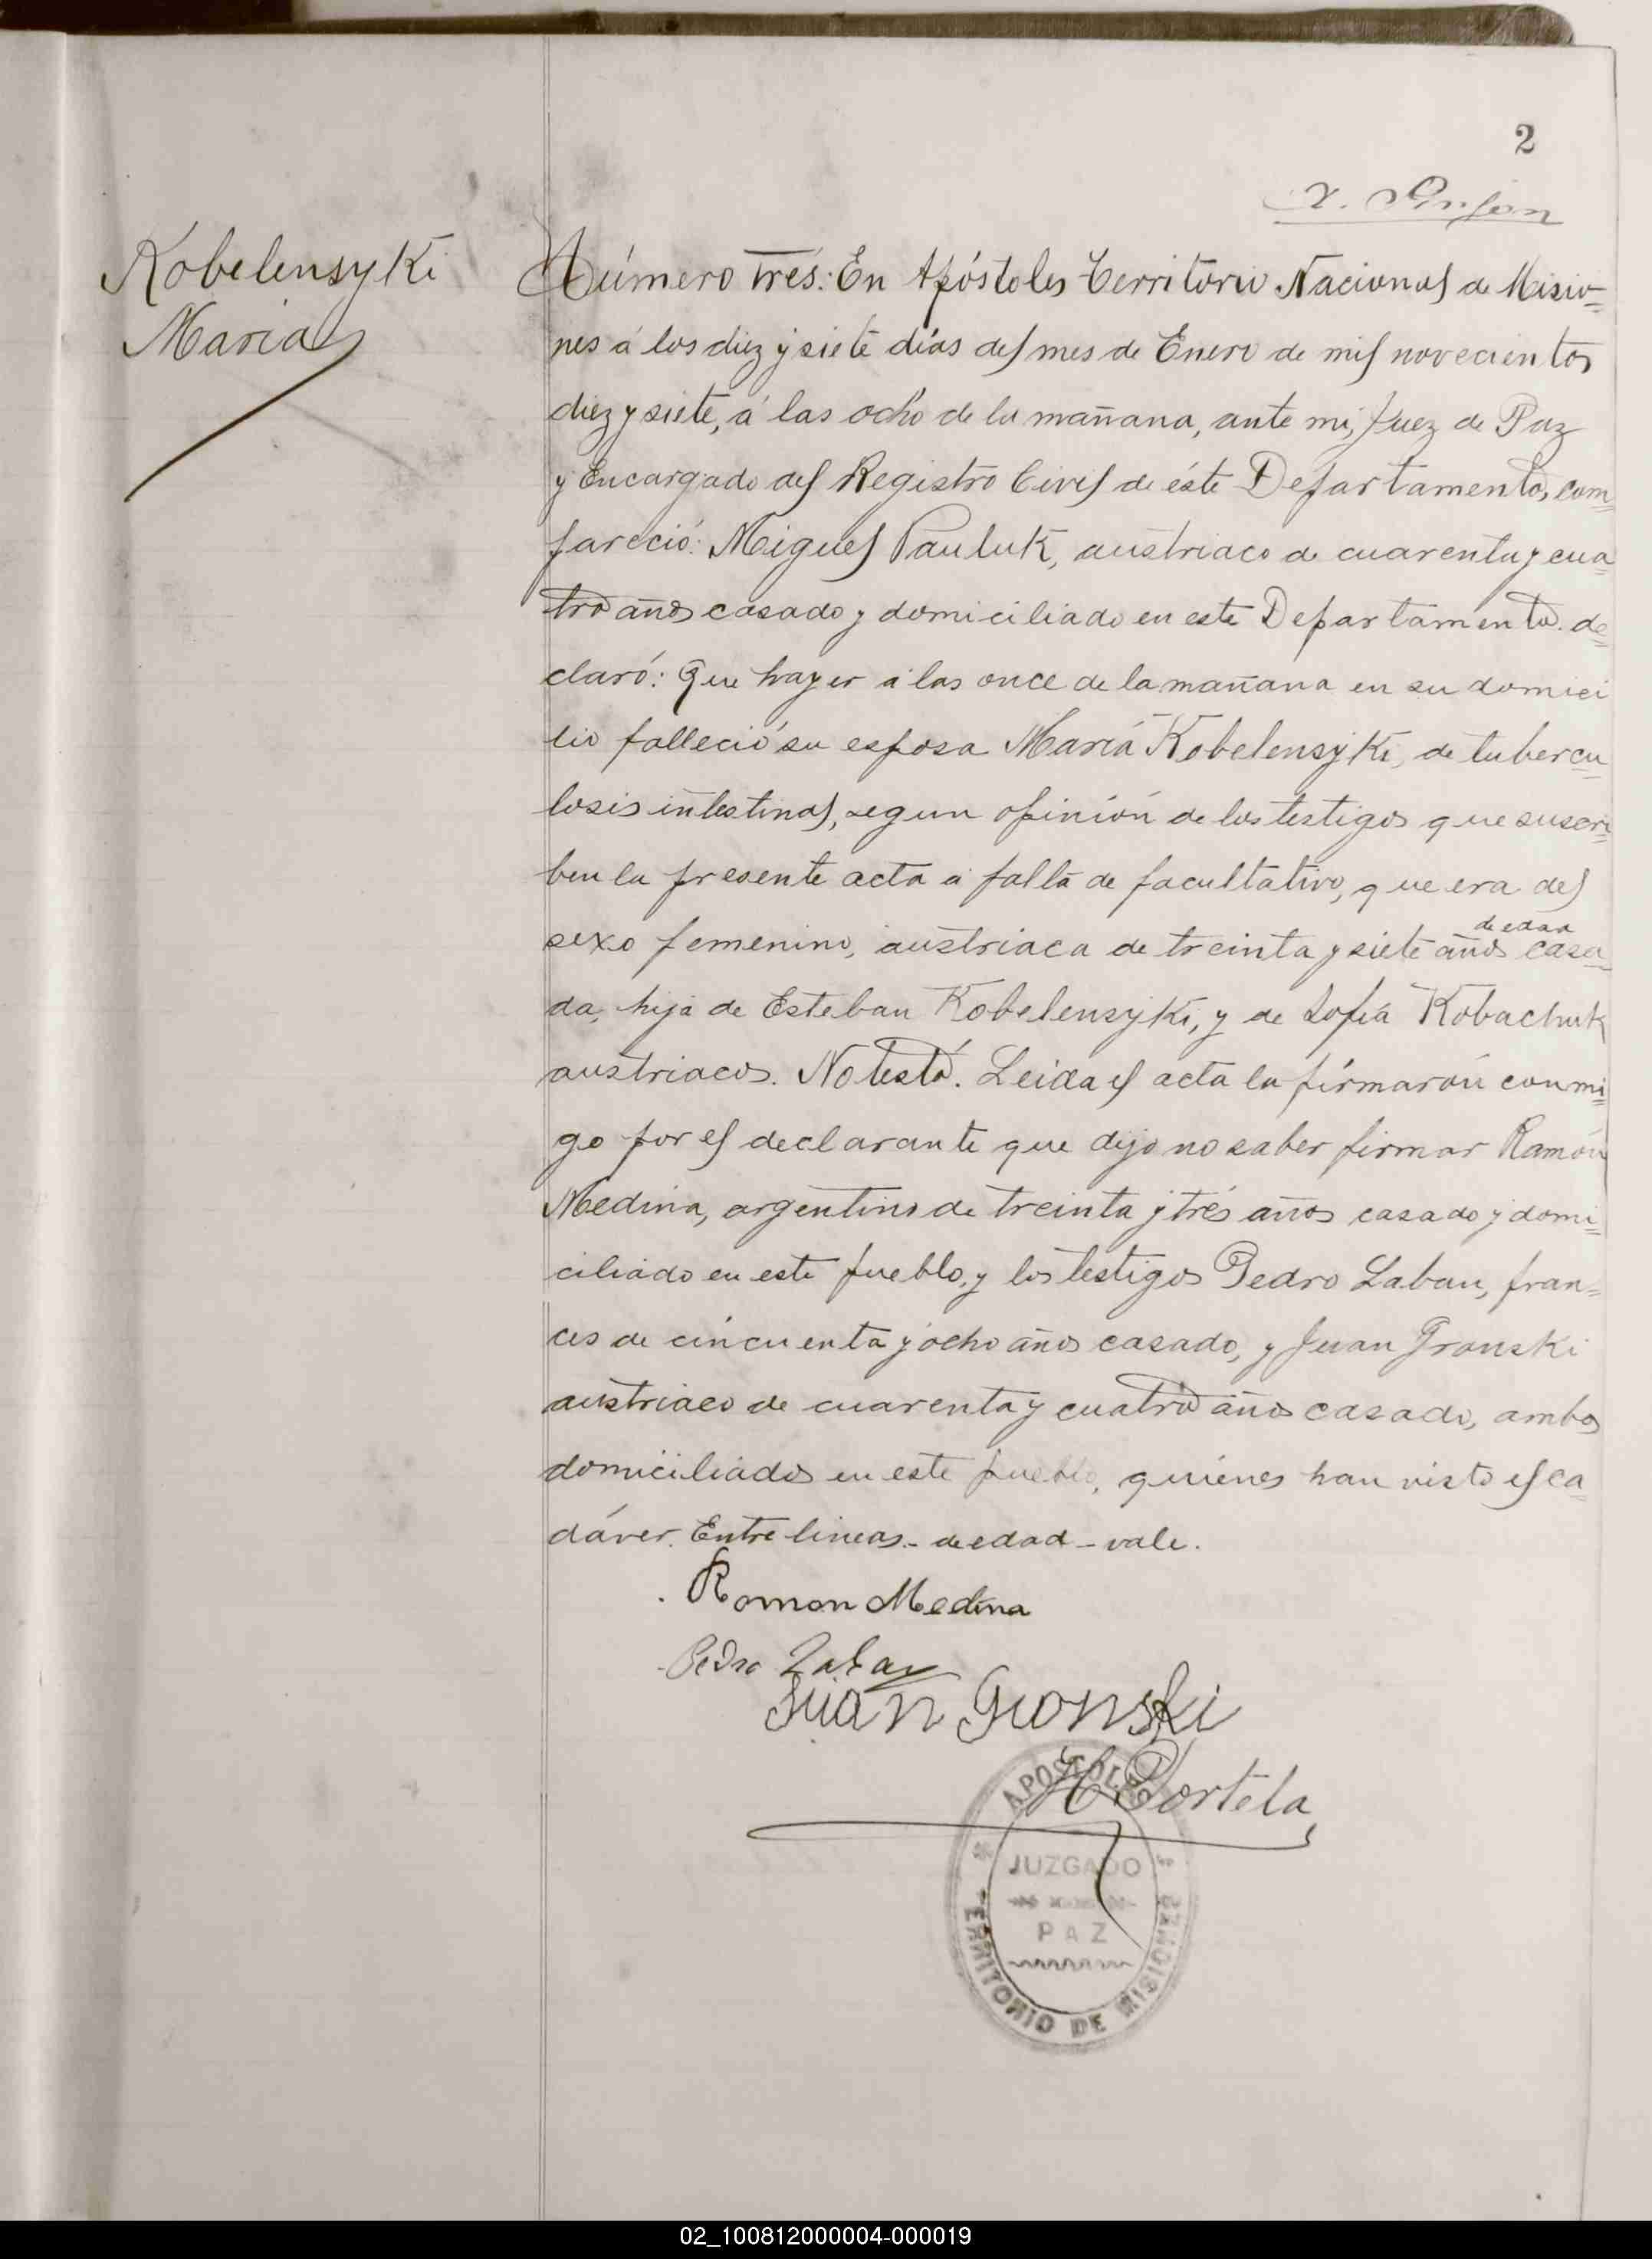 2
Kobelensyki
Maria
Número trés: En Apóstoles Territorio Nacional de Misio=
nes á los diez y siete días del mes de Enero de mil novecientos
diez y siete, á las ocho de la mañana, ante mi, Juez de Paz
y Encargado del Registro Civil de éste Departamento, com=
pareció: Miguel Pauluk, austriaco de cuarenta y cua=
tro años casado y domiciliado en este Departamento. de=
claró: Que hayer á las once de la mañana en su domici
lio falleció su esposa María Kobelensyki, de tubercu=
losis intestinal, segun opinión de los testigos que suscri=
ben la presente acta á falta de facultativo, que era del
sexo femenino, austriaca de treinta y siete años de edad casa=
da, hija de Esteban Kobelensyki, y de Sofía Kobachuk
austriacos. No testó. Leida el acta la firmarón conmi=
go por el declarante que dijo no saber firmar Ramón
Medina, argentino de treinta y trés años casado y domi=
ciliado en este pueblo, y los testigos Pedro Labau, fran=
ces de cincuenta y ocho años casado, y Juan Gronski
austriaco de cuarenta y cuatro años casado, ambos
domiciliados en este pueblo, quienes han visto el ca=
dáver. Entre lineas.- de edad - vale.
Ramon Medina
Pedro Labau
Juan Gronski
H Portela
APOSTOLES
JUZGADO
PAZ
TERRITORIO DE MISIONES
02_100812000004-000019